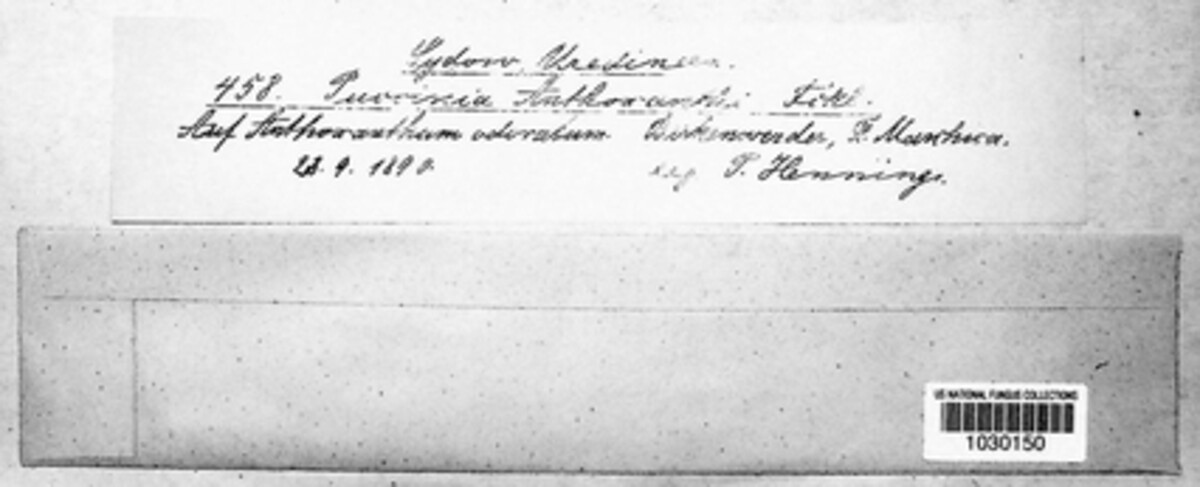 Sydow, Uredineen.
458. Puccinia Anthoxanthi Fckl.
Auf Anthoxanthum odoratum Birkenwerder, P. Marchica.
23. 9. 1890. leg P. Hennings.
US NATIONAL FUNGUS COLLECTIONS
1030150